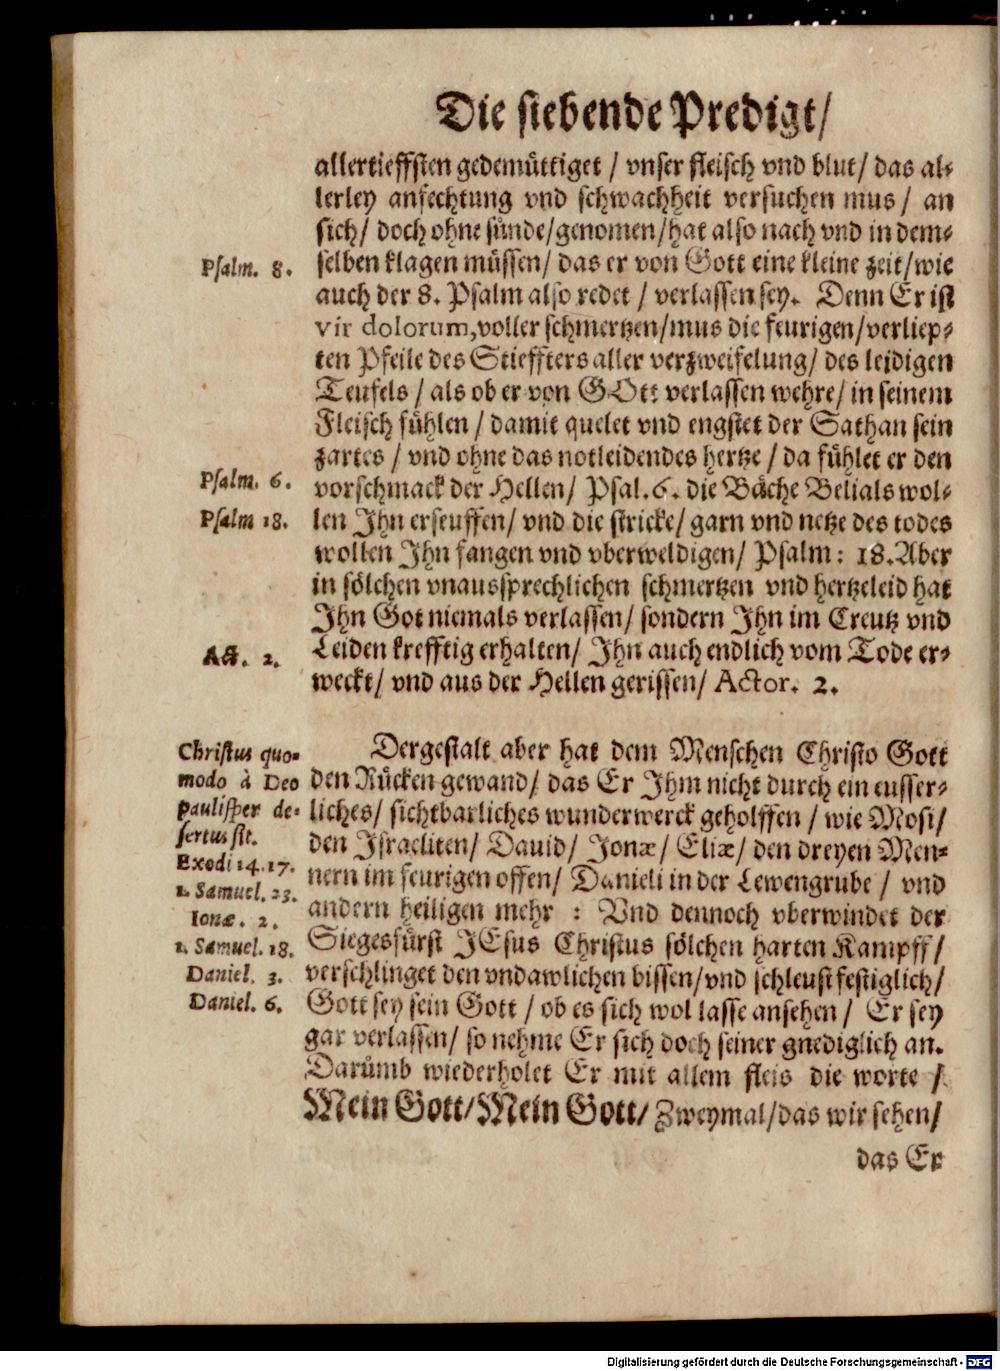 Die siebende Predigt/
allertieffsten gedemüttiget / vnser fleisch vnd blut/ das al-
lerley anfechtung vnd schwachheit versuchen mus/ an
sich/ doch ohne sünde/genomen/hat also nach vnd in dem-
selben klagen müssen/ das er von Gott eine kleine zeit/wie
auch der 8. Psalm also redet / verlassen sey. Denn Er ist
vir dolorum,voller schmertzen/mus die feurigen/verliep-
ten Pfeile des Stieffters aller verzweifelung/ des leidigen
Teufels / als ob er von GOtt verlassen wehre/ in seinem
Fleisch fühlen / damit quelet vnd engstet der Sathan sein
zartes / vnd ohne das notleidendes hertze / da fühlet er den
vorschmack der Hellen/ Psal. 6. die Bäche Belials wol-
len Ihn erseuffen/ vnd die stricke/ garn vnd netze des todes
wollen Ihn fangen vnd vberweldigen/ Psalm: 18. Aber
in sölchen vnaussprechlichen schmertzen vnd hertzeleid hat
Ihn Got niemals verlassen/ sondern Ihn im Creutz vnd
Leiden krefftig erhalten/ Ihn auch endlich vom Tode er-
weckt/ vnd aus der Hellen gerissen/ Actor. 2.
Psalm. 8.
Psalm. 6.
Psalm 18.
Act. 2.
Dergestalt aber hat dem Menschen Christo Gott
den Rücken gewand/ das Er Ihm nicht durch ein eusser-
liches/ sichtbarliches wunderwerck geholffen / wie Mosi/
den Israeliten/ Dauid/ Jonæ/ Eliæ/ den dreyen Men-
nern im feurigen offen/ Danieli in der Lewengrube / vnd
andern heiligen mehr : Vnd dennoch vberwindet der
Siegesfürst JEsus Christus sölchen harten Kampff/
verschlinget den vndawlichen bissen/vnd schleust festiglich/
Gott sey sein Gott / ob es sich wol lasse ansehen / Er sey
gar verlassen/ so nehme Er sich doch seiner gnediglich an.
Darümb wiederholet Er mit allem fleis die worte /
Mein Gott/Mein Gott/ Zweymal/das wir sehen/
das Er
Christus quo-
modo à Deo
paulisper de-
sertus sit.
Exodi 14.17.
1. Samuel. 23.
Ionæ. 2.
1. Samuel. 18.
Daniel. 3.
Daniel. 6.
Digitalisierung gefördert durch die Deutsche Forschungsgemeinschaft - DFG